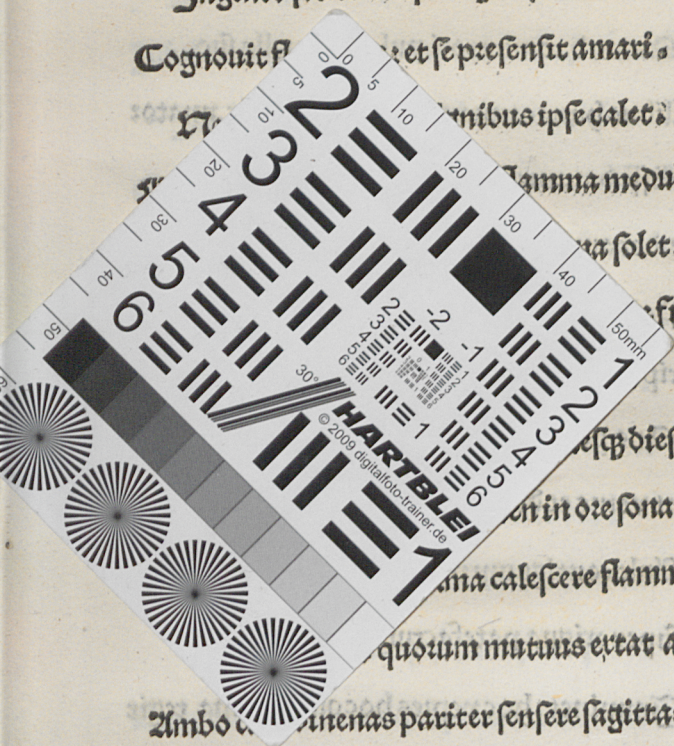 Cognouit fl et se presensit amari.
nibus ipse calet.
lamma medu
na solet
esqꝫ dies
en in ore sona
ma calescere flamm
quorum mutuus extat a
Ambo inenas pariter sensere sagitta
0 5 10 20 30 40 50
0 5 10 20 30 40 50mm
2
3
4
5
6
1
2
3
4
5
6
-2
-1
2
3
4
5
6
1
30°
HARTBLEI
© 2009 digitalfoto-trainer.de
1